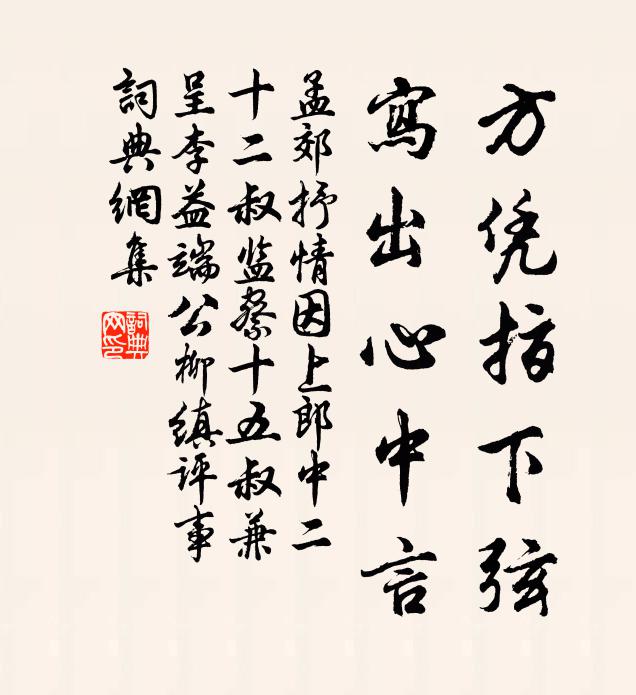 方凭指下弦
寫出心中言
孟郊抒情因上郎中二
十二叔监察十五叔兼
呈李益端公柳縝评事
詞典網集
詞典
网印